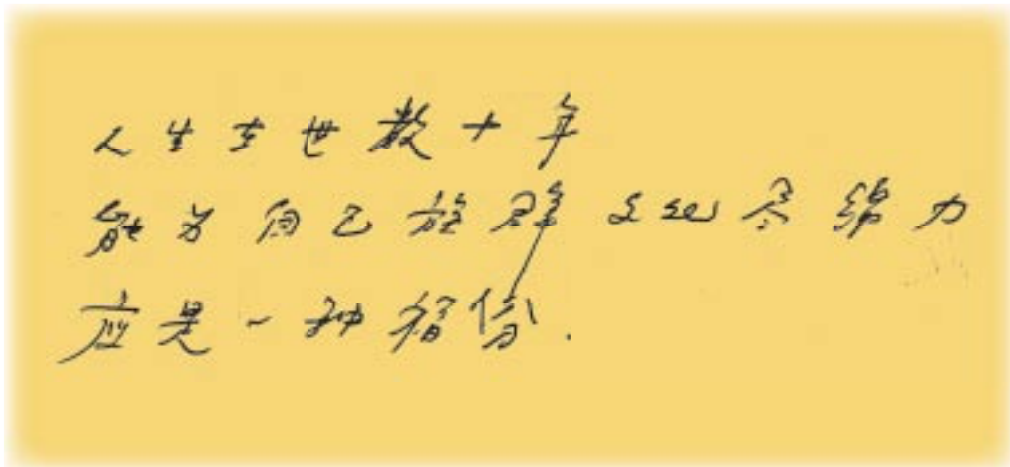 人生在世数十年
能为自己族群文化尽绵力
应是一种福份.